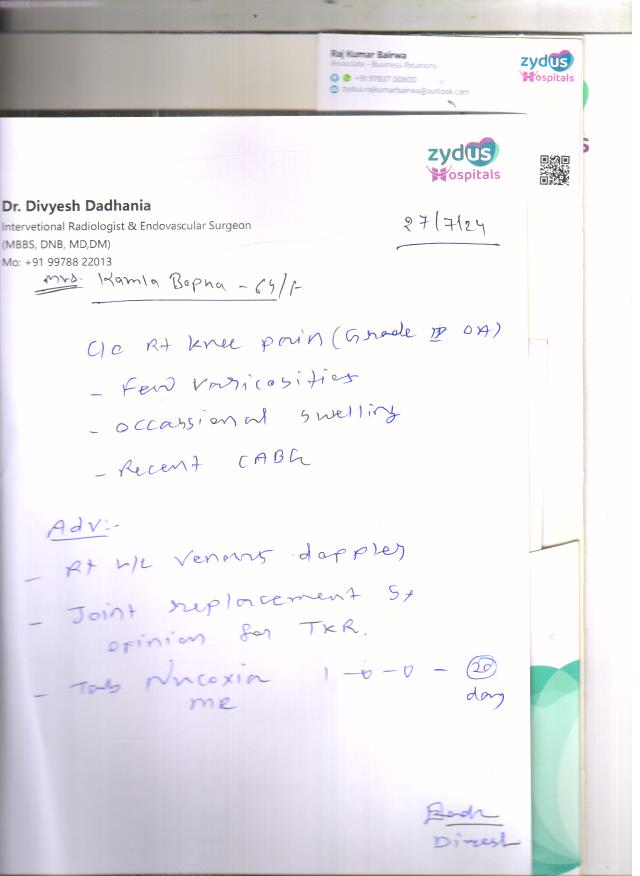 Raj Kumar Bairwa
Associate - Business Relations
+91 97837 00800
zydus.rajkumarbairwa@outlook.com
zydus
Hospitals
zydus
Hospitals
Dr. Divyesh Dadhania
Intervetional Radiologist & Endovascular Surgeon
(MBBS, DNB, MD,DM)
Mo: +91 99788 22013
27/7/24
Mrs. Kamla Bopna - 64/F
C/C Rt knee pain (Grade IV OA)
- Few varicosities
- occassional swelling
- Recent CABG
Adv:-
- Rt L/L venous doppler
- Joint replacement Sx
opinion for TKR.
- Tab Nucoxia 1-0-0 - 20
MR day